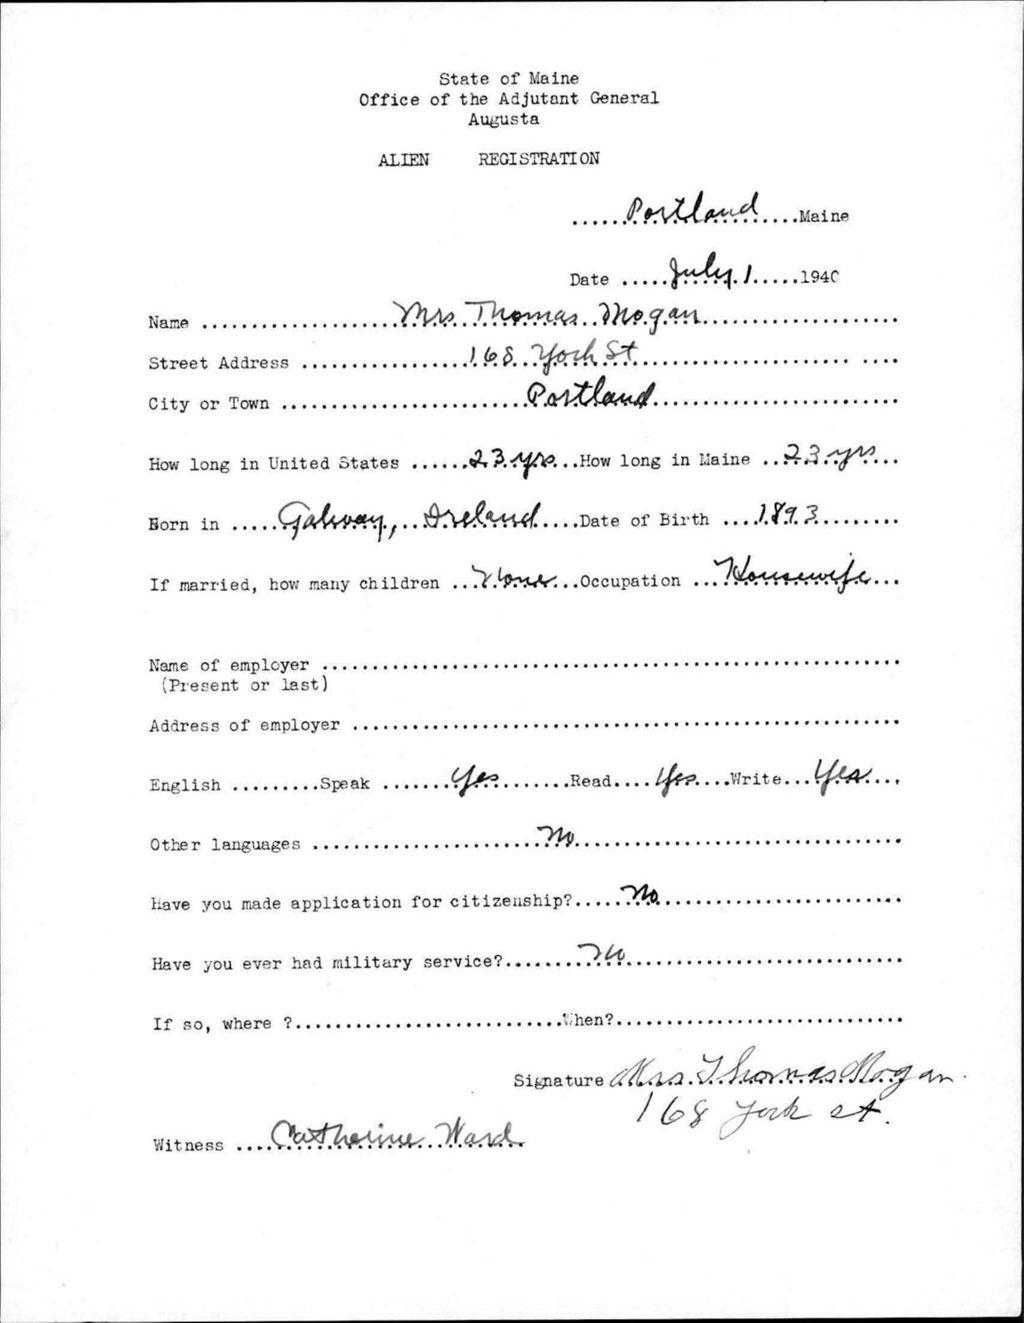 State of Maine
Office of the Adjutant General
Augusta
ALIEN REGISTRATION
......Portland.....Maine
Date .....July 1.....1940
Name ....................Mrs Thomas Mogan....................
Street Address .................168 York St....................
City or Town ........................Portland........................
How long in United States ......23 yrs...How long in Maine ..23 yrs...
Born in .....Galway, Ireland.....Date of Birth ....1893.........
If married, how many children ...None...Occupation ...Housewife...
Name of employer ............................................................
(Present or last)
Address of employer ........................................................
English .........Speak .......Yes.........Read....Yes....Write...Yes....
Other languages ......................No....................................
Have you made application for citizenship?.....No.........................
Have you ever had military service?........No.............................
If so, where ?...........................When?..............................
Signature Mrs. Thomas Mogan.
168 York st.
Witness ....Catherine Ward